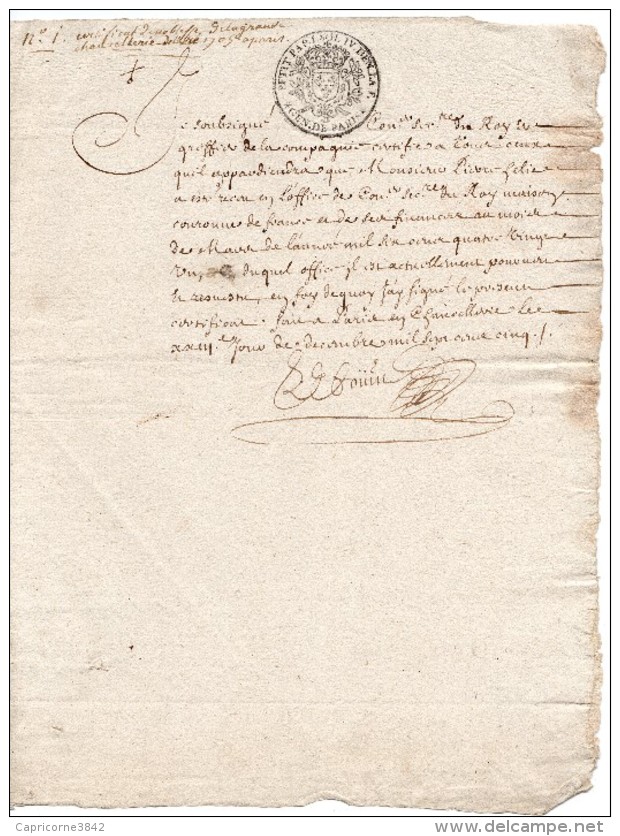 n.º 1. certificat de noblesse de la grande
chancellerie dattée 1705 a paris.
PETIT PAP. 1 SOL IV DEN. LA F.
GEN. DE PARIS
Je soubsigné Con.er Secr.re du Roy et
greffier de la compagnie certiffie a tous ceux
quil appartiendra que Monsieur Pierre
a esté receu en l'office de Con.er Secr.re du Roy maison
couronne de france et de ses finances au mois
de Mars de l'année mil six cens quatre vingt
un, duquel office jl est actuellement pourveu
et revestu, en foy de quoy j'ay signé le present
certificat. fait a Paris en Chancellerie le
xxiii.e jour de decembre mil sept cens cinq /.
Capricorne3842
www.delcampe.net